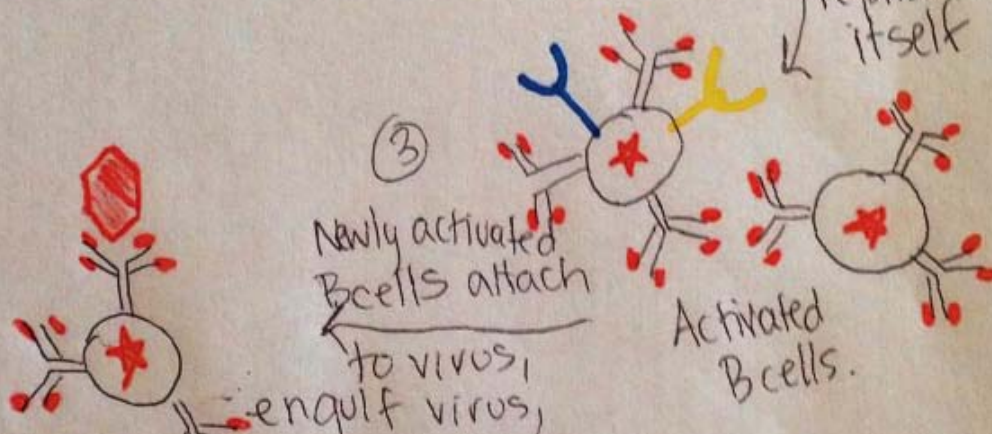 itself
③
Newly activated
Bcells attach
to virus,
engulf virus,
Activated
Bcells.